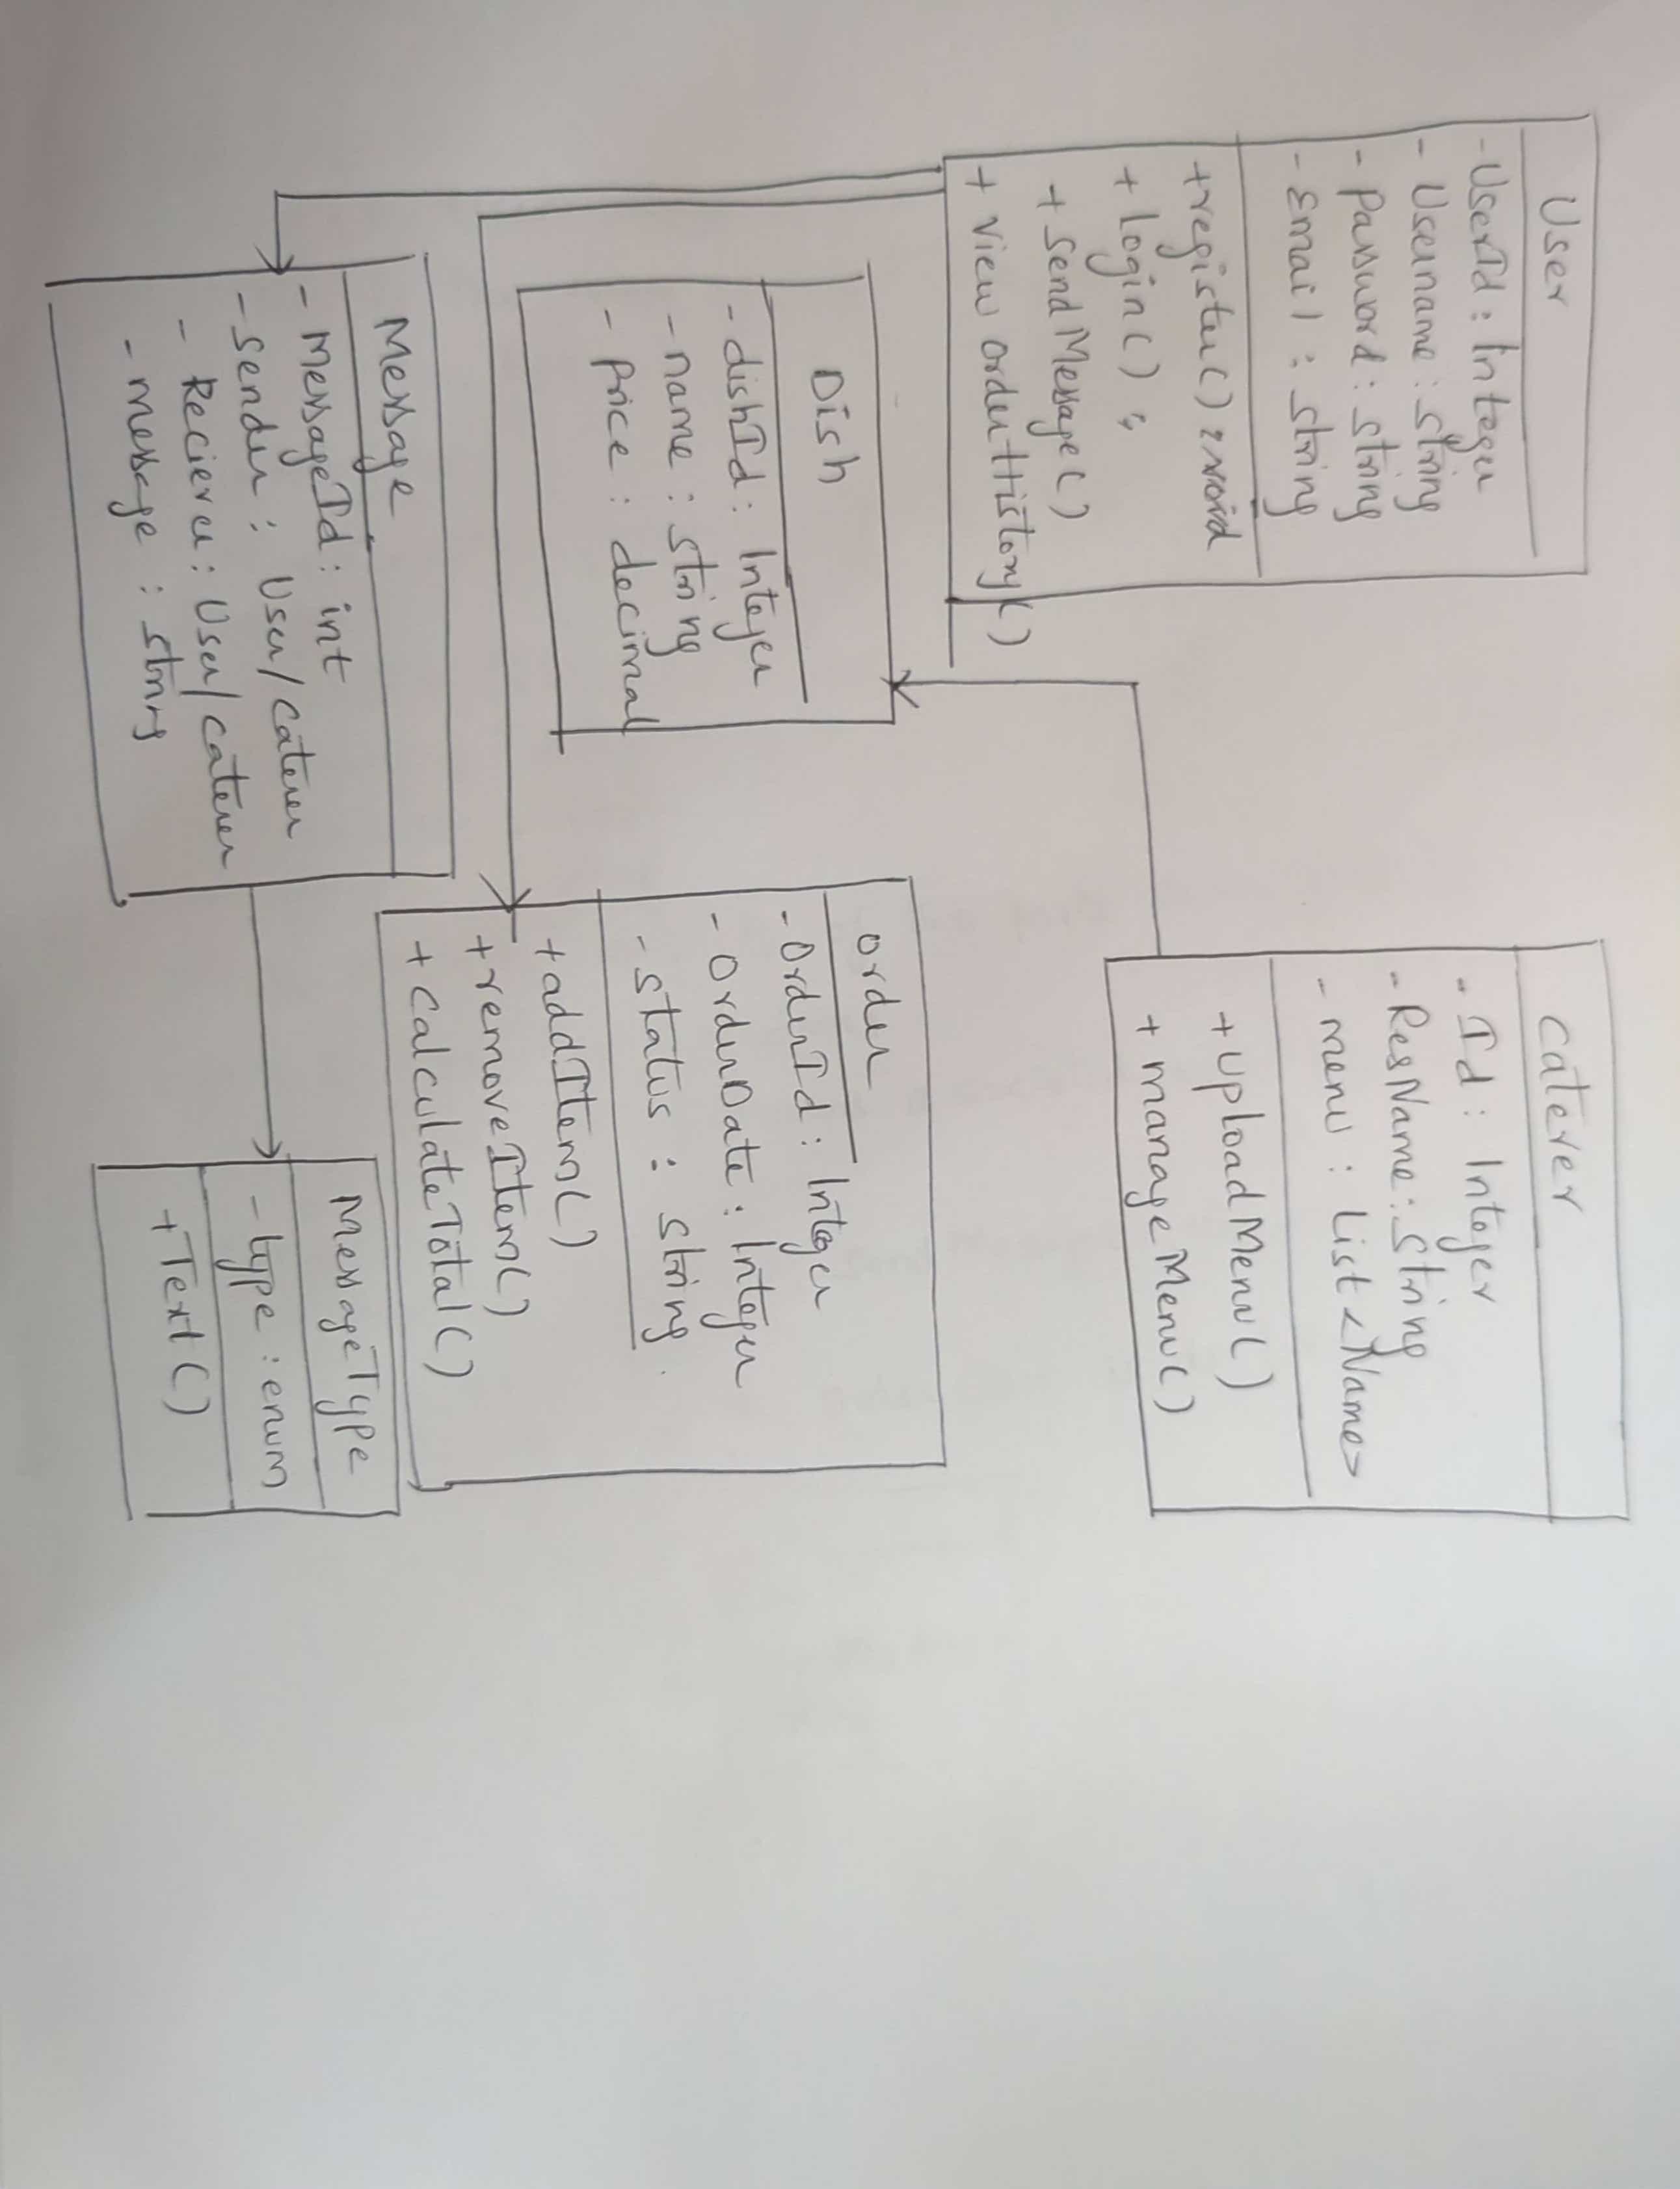 User
- UserId : Integer
- Username : string
- Password : string
- Email : string
+ register() : void
+ login() ;
+ SendMessage()
+ View orderHistory()
Caterer
- Id : Integer
- ResName : String
- menu : List <Name>
+ UploadMenu()
+ manageMenu()
Dish
- dishId : Integer
- name : string
- Price : decimal
order
- OrderId : Integer
- OrderDate : Integer
- status : string
+ addItem()
+ removeItem()
+ CalculateTotal()
Message
- MessageId : int
- sender : User/Caterer
- Reciever : User/Caterer
- message : string
MessageType
- type : enum
+ Text()